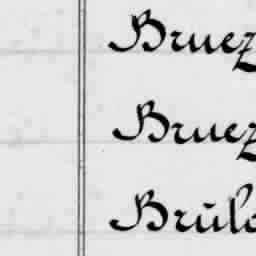 Bruez
Bruez
Brûlo